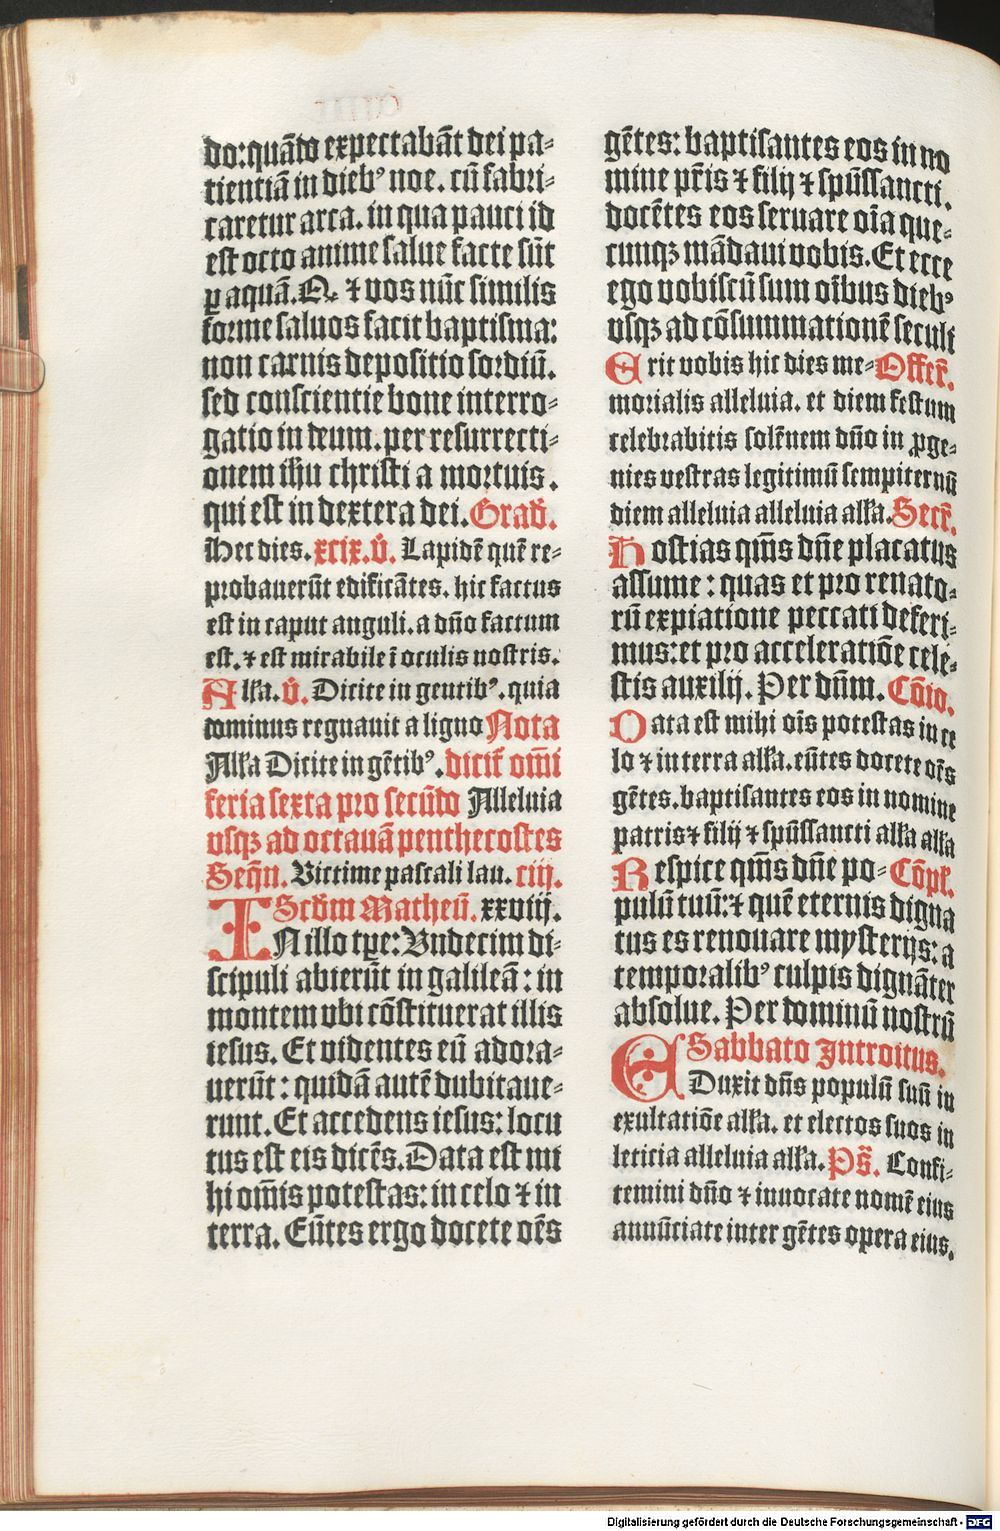 do:quãdo expectabãt dei pa⸗
tientiã in dieb⁹ noe. cũ fabri⸗
caretur arca. in qua pauci id
est octo anime salue facte sũt
ꝑ aquã. Q⁊ ⁊ vos nũc similis
forme saluos facit baptisma:
non carnis depositio sordiũ.
sed conscientie bone interro⸗
gatio in deum. per resurrecti⸗
onem ihũ christi a mortuis.
qui est in dextera dei. Grad̃.
Hec dies. xcix. v̄. Lapidẽ quẽ re⸗
probauerũt edificãtes. hic factus
est in caput anguli. a dño factum
est. ⁊ est mirabile ĩ oculis nostris.
Alľa. v̄. Dicite in gentib⁹. quia
dominus regnauit a ligno Nota
Alľa Dicite in gẽtib⁹. dicit̃ om̃i
feria sexta pro secũdo Alleluia
vsqꝫ ad octauã penthecostes
Seqũ. Victime pascali lau. ciij.
Scďm Matheũ. xxviij.
IN illo tꝑe: Vndecim di⸗
scipuli abierũt in galileã: in
montem vbi cõstituerat illis
iesus. Et videntes eũ adora⸗
uerũt: quidã autẽ dubitaue⸗
runt. Et accedens iesus: locu
tus est eis dicẽs. Data est mi
hi om̃is potestas: in celo ⁊ in
terra. Eũtes ergo docete oẽs
gẽtes: baptisantes eos in no
mine pr̃is ⁊ filij ⁊ spũssancti.
docẽtes eos seruare oĩa que⸗
cunqꝫ mãdaui vobis. Et ecce
ego vobiscũ sum oĩbus dieb⁹
vsqꝫ ad cõsummationẽ seculi
Erit vobis hic dies me⸗ Offer̃.
morialis alleluia. et diem festum
celebrabitis solẽnem dño in ꝓge⸗
nies vestras legitimũ sempiternũ
diem alleluia alleluia alľa. Secr̃.
Hostias qm̃s dñe placatus
assume: quas et pro renato⸗
rũ expiatione peccati deferi⸗
mus: et pro acceleratiõe cele⸗
stis auxilij. Per dñm. Cõio.
Data est mihi oĩs potestas in ce
lo ⁊ in terra alľa. eũtes docete oẽs
gẽtes. baptisantes eos in nomine
patris ⁊ filij ⁊ spũssancti alľa alľa
Respice qm̃s dñe po⸗ Cõpľ.
pulũ tuũ: ⁊ quẽ eternis digna
tus es renouare mysterijs: a
temporalib⁹ culpis dignãter
absolue. Per dominũ nostrũ
Sabbato Introitus.
EDuxit dñs populũ suũ in
exultatiõe alľa. et electos suos in
leticia alleluia alľa. Ps̃. Confi⸗
temini dño ⁊ inuocate nomẽ eius
annũciate inter gẽtes opera eius.
Digitalisierung gefördert durch die Deutsche Forschungsgemeinschaft - DFG